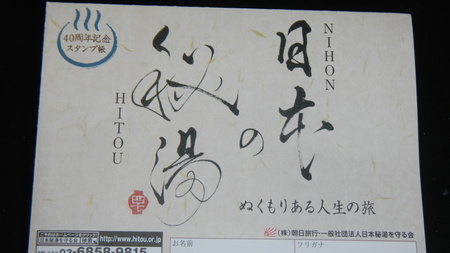 40周年記念
スタンプ帳
NIHON
日本の
秘湯
HITOU
ぬくもりある人生の旅
(株)朝日旅行・一般社団法人日本秘湯を守る会
http://www.hitou.or.jp
03-6858-9815
お名前
フリガナ